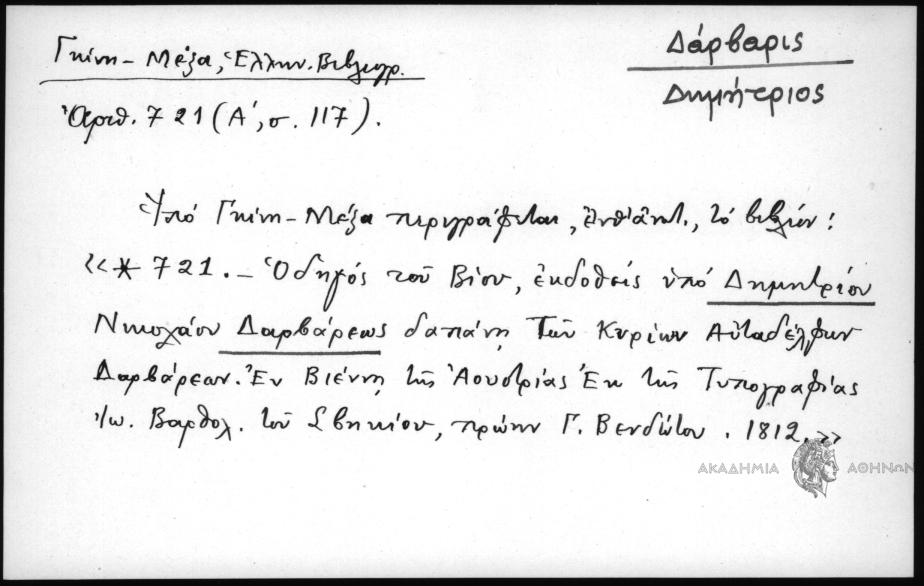 Δάρβαρις
Δημήτριος
Γκίνη - Μέξα, Ἑλλην. Βιβλιογρ.
Ἀριθ. 721 (Α', σ. 117).
Ὑπό Γκίνη - Μέξα περιγράφεται, ἔνθ' ἀνωτ., τό βιβλίον:
«* 721. - Ὁδηγός τοῦ Βίου, ἐκδοθείς ὑπό Δημητρίου
Νικολάου Δαρβάρεως δαπάνῃ τῶν Κυρίων Αὐταδέλφων
Δαρβάρεων. Ἐν Βιέννῃ τῆς Ἀουστρίας Ἐκ τῆς Τυπογραφίας
Ἰω. Βαρθολ. τοῦ Σβηκίου, πρώην Γ. Βενδώτου. 1812.»
ΑΚΑΔΗΜΙΑ ΑΘΗΝΩΝ